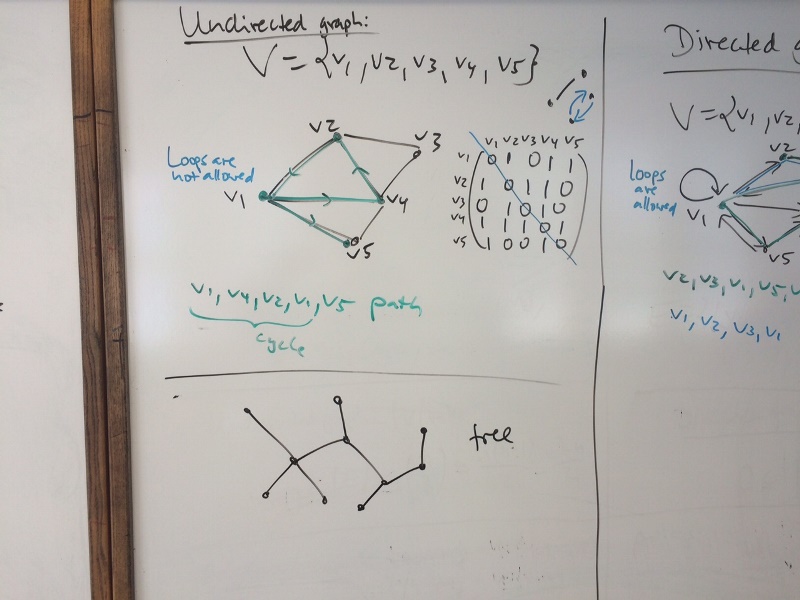 Undirected graph:
V = {v1, v2, v3, v4, v5}
Loops are
not allowed
v2
v3
v1
v4
v5
v1 v2 v3 v4 v5
v1 0 1 0 1 1
v2 1 0 1 1 0
v3 0 1 0 1 0
v4 1 1 1 0 1
v5 1 0 0 1 0
v1, v4, v2, v1, v5 path
cycle
tree
Directed g
V = {v1, v2,
Loops
are
allowed
v2
v1
v5
v2, v3, v1, v5, v
v1, v2, v3, v1